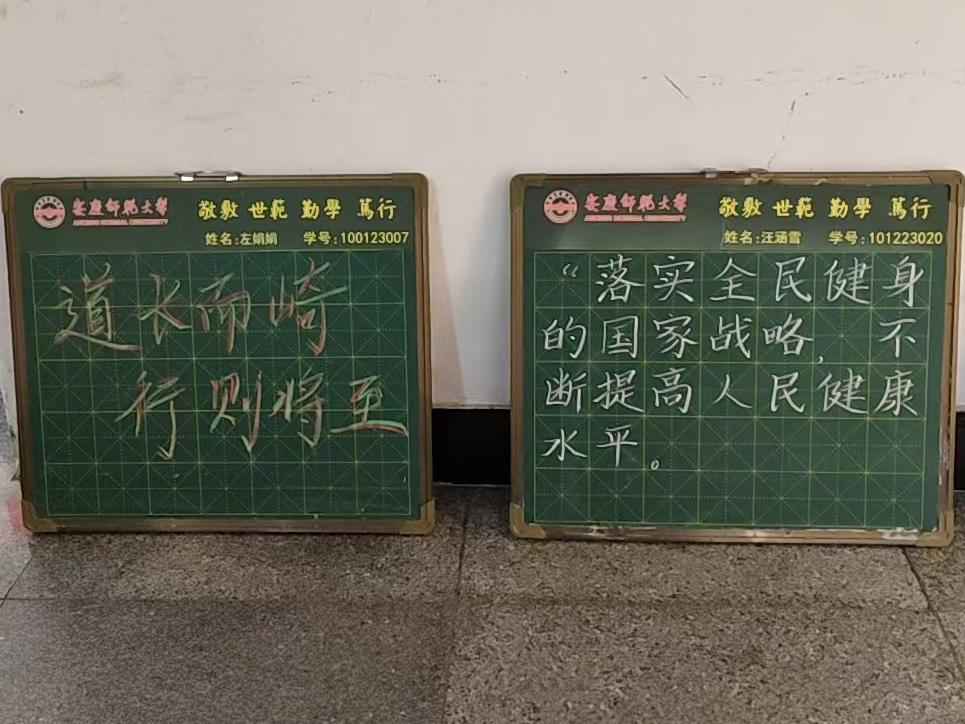 安慶師範大學
ANQING NORMAL UNIVERSITY
敬敷 世範 勤學 篤行
姓名:左娟娟 学号:100123007
道长而崎
行则将至
安慶師範大學
ANQING NORMAL UNIVERSITY
敬敷 世範 勤學 篤行
姓名:汪涵雪 学号:101223020
“落实全民健身
的国家战略,不
断提高人民健康
水平。